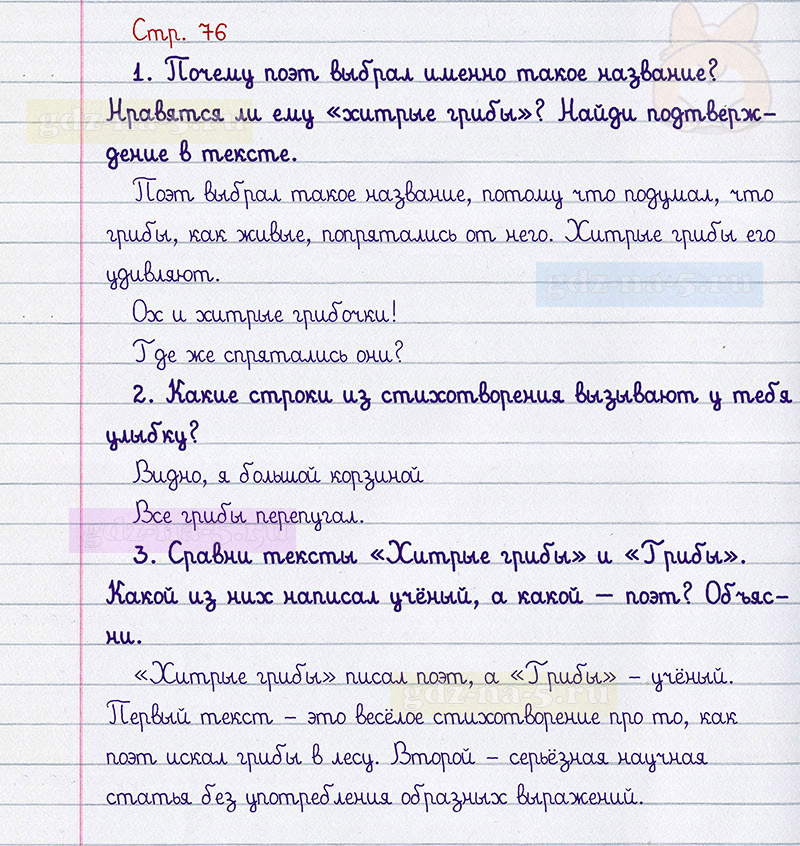 Стр. 76
1. Почему поэт выбрал именно такое название?
Нравятся ли ему «хитрые грибы»? Найди подтверж-
дение в тексте.
Поэт выбрал такое название, потому что подумал, что
грибы, как живые, попрятались от него. Хитрые грибы его
удивляют.
Ох и хитрые грибочки!
Где же спрятались они?
2. Какие строки из стихотворения вызывают у тебя
улыбку?
Видно, я большой корзиной
Все грибы перепугал.
3. Сравни тексты «Хитрые грибы» и «Грибы».
Какой из них написал учёный, а какой — поэт? Объяс-
ни.
«Хитрые грибы» писал поэт, а «Грибы» – учёный.
Первый текст – это весёлое стихотворение про то, как
поэт искал грибы в лесу. Второй – серьёзная научная
статья без употребления образных выражений.
gdz-na-5.ru
gdz-na-5.ru
gdz-na-5.ru
gdz-na-5.ru